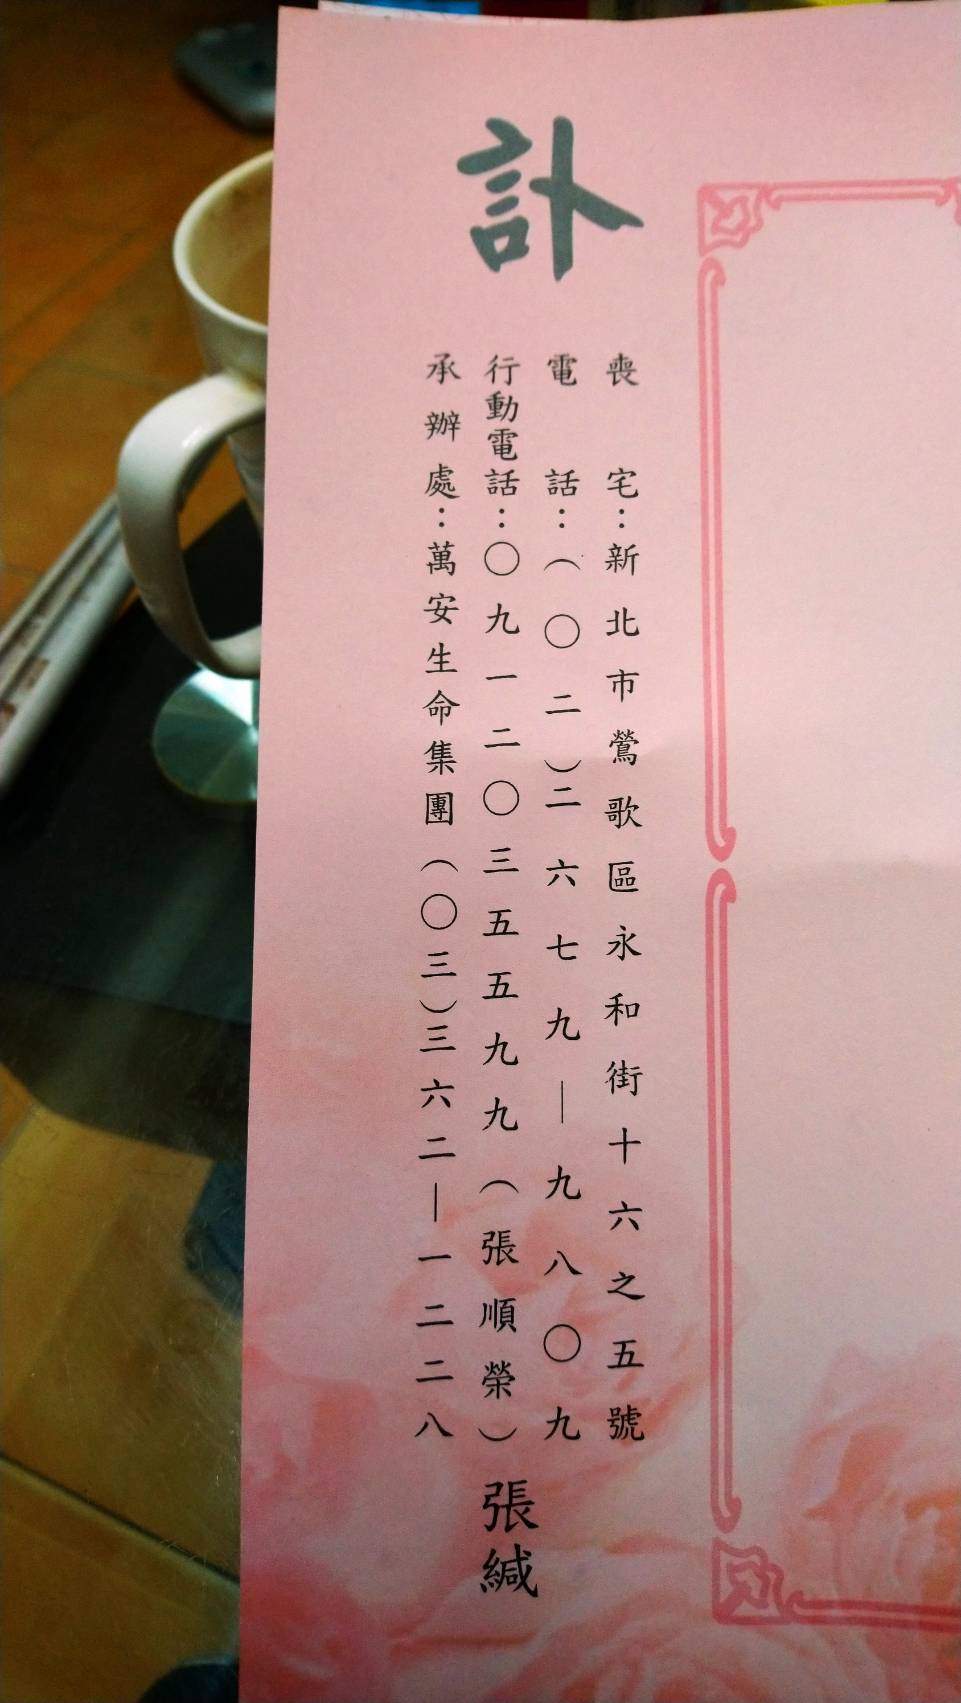 訃
喪宅：新北市鶯歌區永和街十六之五號
電話：（〇二）二六七九—九八〇九
行動電話：〇九一二〇三五五九九（張順榮）
承辦處：萬安生命集團（〇三）三六二—一二二八
張緘